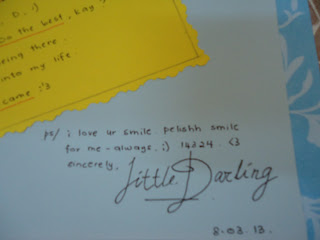 D. :)
Do the best, kay?
being there.
into my life.
came :'3
ps/ i love ur smile. pelishh smile
for me - always. ;) 14324. <3
sincerely,
Little Darling
8.03.13.